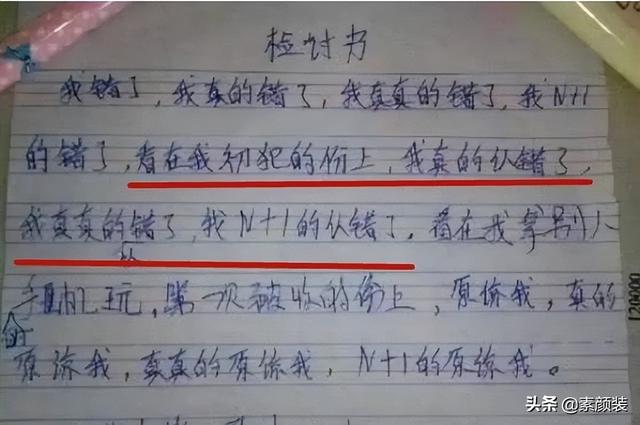 检讨书
我错了，我真的错了，我真真的错了，我N+1
的错了，看在我初犯的份上，我真的认错了，
我真真的错了，我N+1的认错了，看在我拿别人
手机玩，第一次被收的份上，原谅我，真的
原谅我，真真的原谅我，N+1的原谅我。
头条 @素颜装